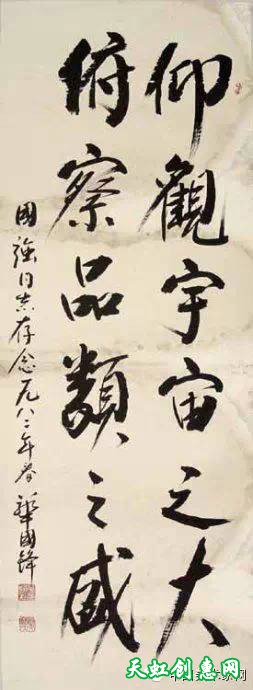 仰觀宇宙之大
俯察品類之盛
國強同志存念一九八二年春 華國鋒
天虹创惠网